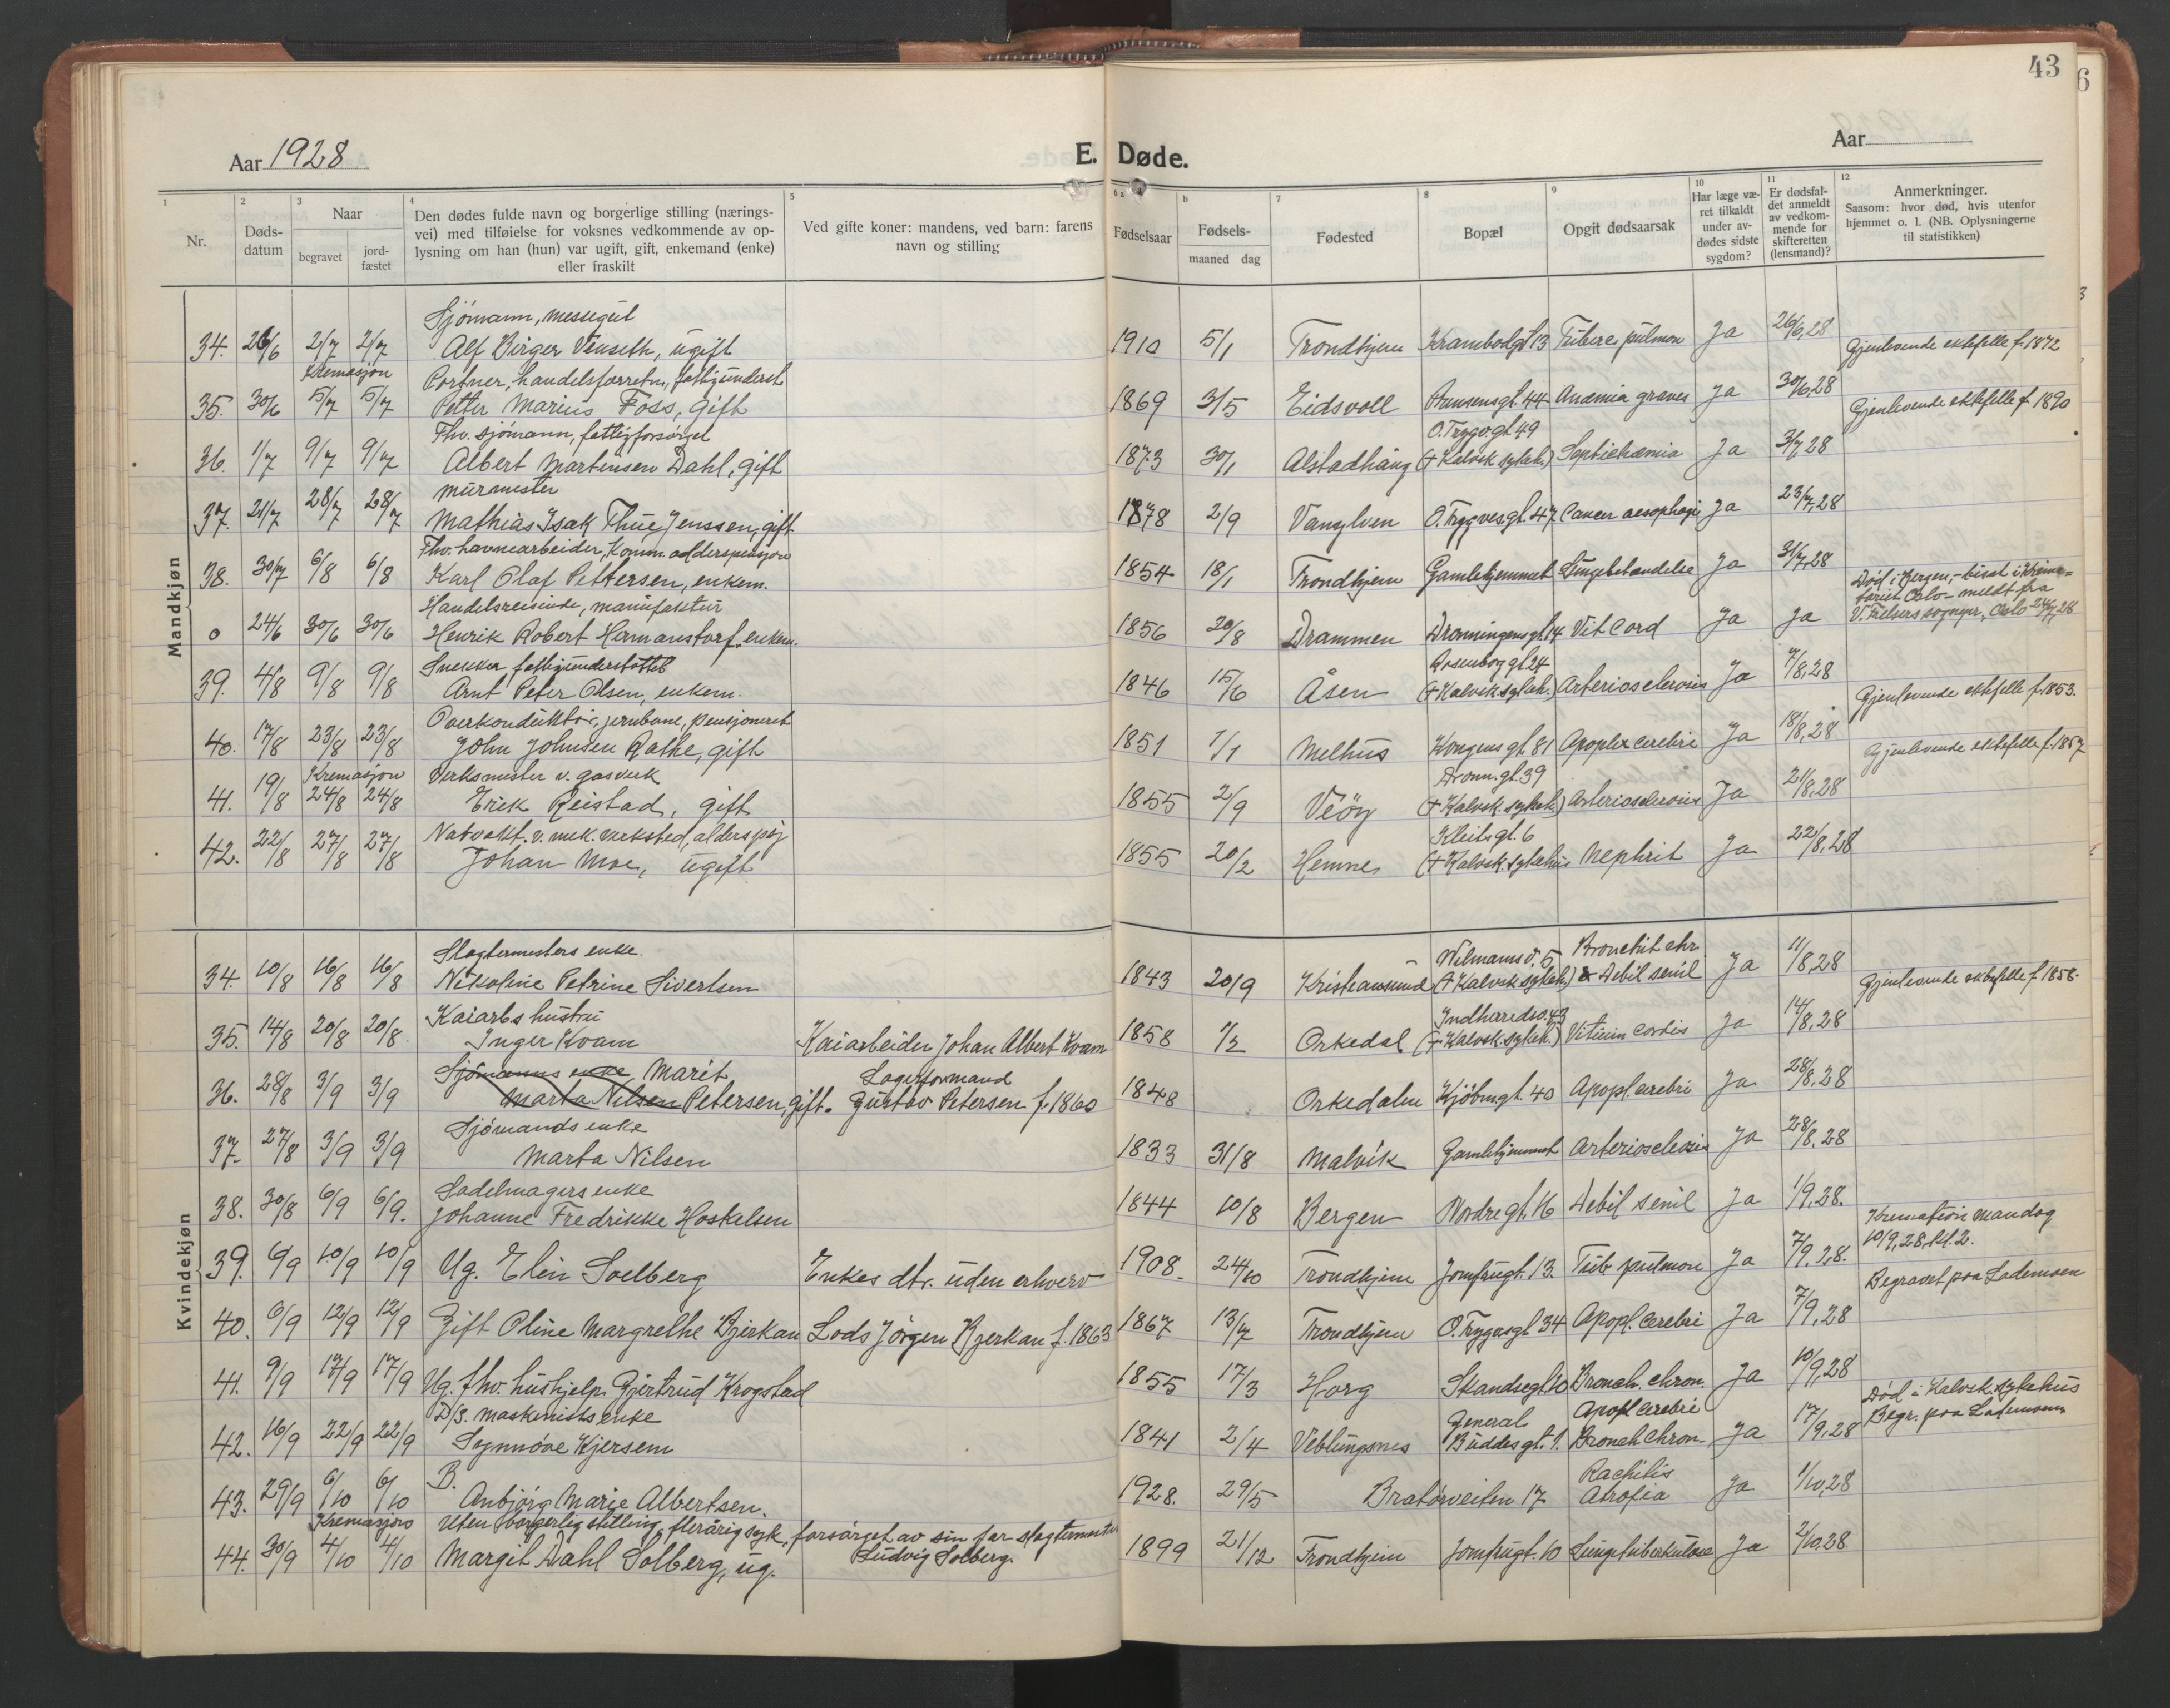 43
6
Aar 1928
E. Døde.
Aar
1 2 3 4 5 6 a b 7 8 9 10 11 12
Nr.
Døds-
datum
Naar
begravet
jord-
fæstet
Den dødes fulde navn og borgerlige stilling (nærings-
vei) med tilføielse for voksnes vedkommende av op-
lysning om han (hun) var ugift, gift, enkemand (enke)
eller fraskilt
Ved gifte koner: mandens, ved barn: farens
navn og stilling
Fødselsaar
Fødsels-
maaned dag
Fødested
Bopæl
Opgit dødsaarsak
Har læge væ-
ret tilkaldt
under av-
dødes sidste
sygdom?
Er dødsfal-
det anmeldt
av vedkom-
mende for
skifteretten
(lensmand)?
Anmerkninger.
Saasom: hvor død, hvis utenfor
hjemmet o. l. (NB. Oplysningerne
til statistikken)
Mandkjøn
Sjömann, messegut
34. 26/6 2/7 2/7 Alf Birger Venseth, ugift 1910 5/1 Trondhjem Krambodgt 13 Tuberc. pulmon Ja 26/6,28
Gjenlevende ektefelle f. 1872
Kremasjon Portner, handelsforretn., fattigunderst
35. 30/6 5/7 5/7 Petter Marius Foss, gift 1869 3/5 Eidsvoll gt. 44 Anæmia graves Ja 30/6,28
Gjenlevende ektefelle f. 1890
Fhv. sjömann, fattigforsörget O. Trygv.gt 49
36. 1/7 9/7 9/7 Albert Martinsen Dahl, gift 1873 30/1 Alstadhaug († Kalvsk sykeh.) Septichæmia Ja 3/7,28
Murmester
37. 21/7 28/7 28/7 Mathias Isak Thue Jenssen, gift 1878 2/9 Vanylven O. Trygvesgt. 47 Cancer aesophagi Ja 23/7,28
Fhv. havnearbeider, Komm. alderspensjon
38. 30/7 6/8 6/8 Karl Olaf Pettersen, enkem. 1854 18/1 Trondhjem Gamlehjemmet Lungebetændelse Ja 31/7,28
Død i Bergen,- bisat i krema-
toriet Oslo - meldt fra
V. Frelsers sogneprs, Oslo
Handelsreisende, manufaktur
0 24/6 30/6 30/6 Henrik Robert Hermanstorf, enkem. 1856 20/8 Drammen Dronningensgt. 14 Vit Cord Ja Ja
Snekker, fattigunderstöttet Rosenborggt 24
39. 4/8 9/8 9/8 Arnt Peter Olsen, enkem. 1846 15/6 Åsen († Kalvsk sykeh.) Arteriosclerosis Ja 7/8,28
Gjenlevende ektefelle f. 1853.
Overkonduktör, jernbane, pensjonert
40. 17/8 23/8 23/8 John Johnsen Rathe, gift 1851 1/1 Melhus Kongensgt. 81 Apoplex cerebri Ja 18/8,28
Gjenlevende ektefelle f. 1857
Kremasjon Verksmester v. gasverk Dronn.gt. 39
41. 19/8 24/8 24/8 Erick Reistad, gift 1855 2/9 Veöy († Kalvsk. sykeh.) Arteriosclerosis Ja 21/8,28
Natvakt. v. mek. verksted, alderspsj Kleitsgt. 6
42. 22/8 27/8 27/8 Johan Moe, ugift 1855 20/2 Hemne († Kalvsk. sykehus Nephrit Ja 22/8,28
Kvindekjøn
Slagtermesters enke Wilmannsv. 5 Bronchit chr.
34. 10/8 16/8 16/8 Nikoline Petrine Sivertsen 1843 20/9 Kristiansund († Kalvsk sykeh.) & Debil senil Ja 11/8,28
Gjenlevende ektefelle f. 1858.
Kaiarbs hustru Indherredsv. 43
35. 14/8 20/8 20/8 Inger Kvam Kaiarbeider Johan Albert Kvam 1858 1/2 Orkedal († Kalvsk. sykeh.) Vitium cordis Ja 14/8,28
Sjömanns enke Marit Lagerformand
36. 28/8 3/9 3/9 Marta Nilsen Petersen, gift. Gustav Petersen f. 1860 1848 Orkedalen Kjöbmgt. 40 Apopl. cerebri Ja 28/8,28
Sjömands enke
37. 27/8 3/9 3/9 Marta Nilsen 1833 31/8 Malvik Gamlehjemmet Arteriosclerosis Ja 28/8,28
Sadelmagers enke
38. 30/8 6/9 6/9. Johanne Fredrikke Hoskelsen 1844 10/8 Bergen Nordregt. 16 Debil senil Ja 1/9,28.
Kremation mandag
10/9,28, kl. 2.
39. 6/9 10/9 10/9 Ug. Elin Soelberg Enkes dtr. uden erhverv 1908. 24/10 Trondhjem Jomfrugt. 13. Tub pulmon Ja 7/9,28.
Begravet paa Lademoen
40. 6/9 12/9 12/9 Gift Oline Margrethe Bjerkan Lods Jörgen Bjerkan f. 1863 1867 13/7 Trondhjem O. Trygvasgt 34 Apopl. cerebri Ja 7/9,28
41. 9/9 17/9 17/9 Ug. fhv. hushjelp Gjertrud Krogstad 1855 17/3 Horg Skandsegt. 10 Bronch. chron. Ja 10/9,28
Død i Kalvsk. sykehus
Begr. paa Lademoen
D/S. maskinists enke General Apopl cerebri
42. 16/9 22/9 22/9 Synnöve Kjersem 1841 2/4 Veblungsnes Buddesgt. 1. Bronch chron. Ja 17/9,28
B. Rachitis
43. 29/9 6/10 6/10 Anbjörg Marie Albertsen. 1928. 29/5 Bratörveiten 17 Atrofia Ja 1/10,28
Kremasjons Uten borgerlig stilling, flerårig syk, forsörget av sin far slagtermester
44. 30/9 4/10 4/10 Margit Dahl Solberg, ug. Ludvig Solberg. 1899 21/12 Trondhjem Jomfrugt. 10 Lungetuberkulose Ja 2/10,28